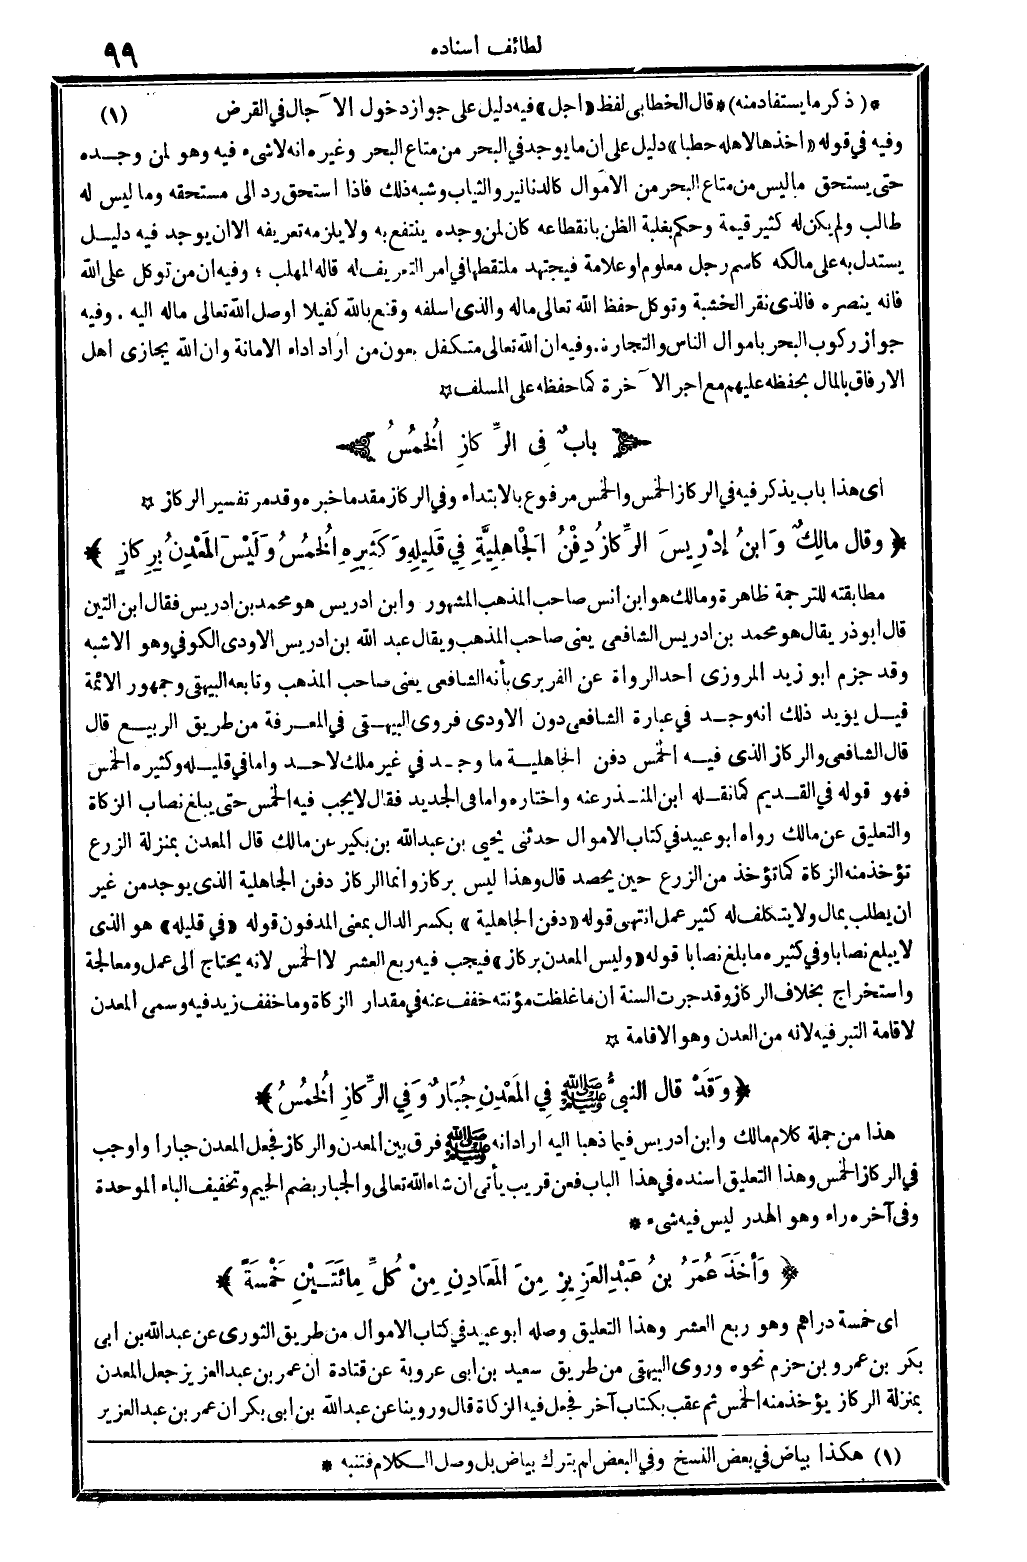 لطائف أسناده
٩٩
*(ذكر ما يستفاد منه)* قال الخطابي لفظ «اجل» فيه دليل على جواز دخول الآجال في القرض (١)
وفيه في قوله «اخذها لاهله حطبا» دليل على ان ما يوجد في البحر من متاع البحر وغيره انه لا شيء فيه وهو لمن وجده
حتى يستحق ما ليس من متاع البحر من الاموال كالدنانير والثياب وشبه ذلك فاذا استحق رد الى مستحقه وما ليس له
طالب ولم يكن له كثير قيمة وحكم بغلبة الظن بانقطاعه كان لمن وجده ينتفع به ولا يلزمه تعريفه الا ان يوجد فيه دليل
يستدل به على مالكه كاسم رجل معلوم او علامة فيجتهد ملتقطها في امر التعريف له قاله المهلب ؛ وفيه ان من توكل على الله
فانه ينصره فالذي نقر الخشبة وتوكل حفظ الله تعالى ماله والذي اسلفه وقنع بالله كفيلا اوصل الله تعالى ماله اليه . وفيه
جواز ركوب البحر باموال الناس والتجارة . وفيه ان الله تعالى متكفل بعون من اراد اداء الامانة وان الله يجازى اهل
الارفاق بالمال بحفظه عليهم مع اجر الآخرة كما حفظه على المسلف ☆
بابٌ فِى الرِّكازِ الخُمُسُ
اى هذا باب يذكر فيه في الركاز الخمس والخمس مرفوع بالابتداء وفي الركاز مقدما خبره وقد مر تفسير الركاز ☆
﴿ وقال مالِكٌ وَابنُ إدْرِيسَ الرِّكازُ دِفْنُ الجْاهِلِيَّةِ فِي قَلِيلِهِ وَكَثِيرِهِ الخُمُسُ وَلَيْسَ المَعْدِنُ بِرِكازٍ ﴾
مطابقته للترجمة ظاهرة ومالك هو ابن أنس صاحب المذهب المشهور وابن ادريس هو محمد بن ادريس فقال ابن التين
قال ابو ذر يقال هو محمد بن ادريس الشافعي يعنى صاحب المذهب ويقال عبد الله بن ادريس الاودى الكوفي وهو الاشبه
وقد جزم ابو زيد المروزى احد الرواة عن الفربرى بأنه الشافعى يعنى صاحب المذهب وتابعه البيهقى وجمهور الائمة
قيل يؤيد ذلك انه وجد في عبارة الشافعى دون الاودى فروى البيهقي في المعرفة من طريق الربيع قال
قال الشافعى والركاز الذى فيه الخمس دفن الجاهلية ما وجد في غير ملك لاحد واما في قليله وكثيره الخمس
فهو قوله في القديم كما نقله ابن المنذر عنه واختاره واما فى الجديد فقال لا يجب فيه الخمس حتى يبلغ نصاب الزكاة
والتعليق عن مالك رواه ابو عبيد في كتاب الاموال حدثنى يحيى بن عبد الله بن بكير عن مالك قال المعدن بمنزلة الزرع
تؤخذ منه الزكاة كما تؤخذ من الزرع حين يحصد قال وهذا ليس بركاز وانما الركاز دفن الجاهلية الذى يوجد من غير
ان يطلب بمال ولا يتكلف له كثير عمل انتهى قوله «دفن الجاهلية» بكسر الدال بمعنى المدفون قوله «في قليله» هو الذى
لا يبلغ نصابا وفي كثيره ما بلغ نصابا قوله «وليس المعدن بركاز» فيجب فيه ربع العشر لا الخمس لانه يحتاج الى عمل ومعالجة
واستخراج بخلاف الركاز وقد جرت السنة ان ما غلظت مؤنته خفف عنه في مقدار الزكاة وما خفف زيد فيه وسمى المعدن
لاقامة التبر فيه لانه من العدن وهو الاقامة ☆
﴿ وَقَدْ قال النبىُّ ﷺ فِي المَعْدِنِ جُبَارٌ وَفِي الرِّكازِ الخُمُسُ ﴾
هذا من جملة كلام مالك وابن ادريس فيما ذهبا اليه ارادا انه ﷺ فرق بين المعدن والركاز فجعل المعدن جبارا واوجب
في الركاز الخمس وهذا التعليق اسنده في هذا الباب فعن قريب يأتى ان شاء الله تعالى والجبار بضم الجيم وتخفيف الباء الموحدة
وفى آخره راء وهو الهدر ليس فيه شىء *
﴿ وَأخَذَ عُمَرُ بنُ عَبْدِ العَزِيزِ مِنَ المَعَادِنِ مِنْ كُلِّ مِائَتَيْنِ خَمْسَةً ﴾
اى خمسة دراهم وهو ربع العشر وهذا التعليق وصله ابو عبيد في كتاب الاموال من طريق الثورى عن عبد الله بن ابى
بكر بن عمرو بن حزم نحوه وروى البيهقى من طريق سعيد بن ابى عروبة عن قتادة ان عمر بن عبد العزيز جعل المعدن
بمنزلة الركاز يؤخذ منه الخمس ثم عقب بكتاب آخر فجعل فيه الزكاة قال وروينا عن عبد الله بن ابى بكر ان عمر بن عبد العزيز
(١) هكذا بياض في بعض النسخ وفي البعض لم يترك بياض بل وصل الكلام فتنبه *